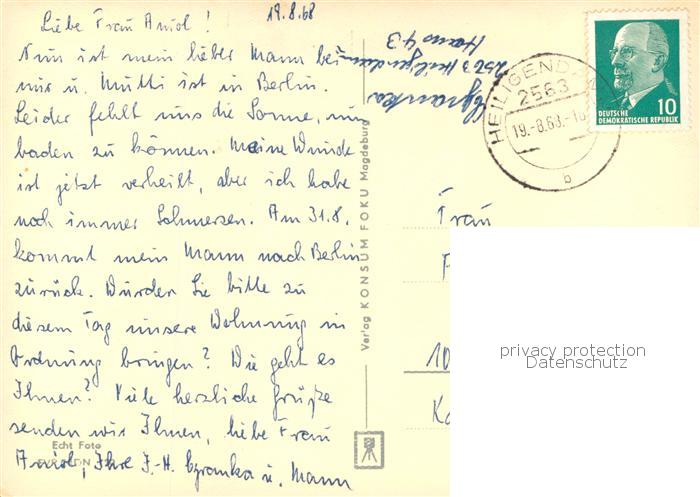 19.8.68
Liebe Frau Amol!
Nun ist mein lieber Mann bei
mir u. Mutti ist in Berlin.
Leider fehlt uns die Sonne, um
baden zu können. Meine Wunde
ist jetzt verheilt, aber ich habe
noch immer Schmerzen. Am 31.8.
kommt mein Mann nach Berlin
zurück. Würden Sie bitte zu
diesem Tag unsere Wohnung in
Ordnung bringen? Wie geht es
Ihnen? Viele herzliche Grüße
senden wir Ihnen, liebe Frau
Ihre J.-H. Czranka u. Mann
Echt Foto
Czranka
2563 Heiligendamm
Haus 43
Verlag KONSUM FOKU Magdeburg
HEILIGENDAMM
2563
19.-8.68.-1
b
10
DEUTSCHE
DEMOKRATISCHE REPUBLIK
Frau
10
privacy protection
Datenschutz